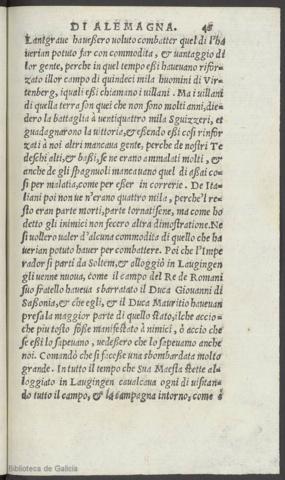 DI ALEMAGNA. 46
Lantgraue haueßero uoluto combatter quel dì l'ha
uerian potuto far con commodita, & uantaggio di
lor gente, perche in quel tempo eßi haueuano rifor
zato illor campo di quindeci mila huomini di Vir-
tenberg, iquali eßi chiamano i uillani. Ma i uillani
di quella terra son quei che non sono molti anni, die-
dero la battaglia à uentiquattro mila Sguizzeri, et
guadagnarono la uittoria, & eßendo eßi cosi rinfor
zati à noi altri mancaua gente, perche de nostri Te
deschi alti, & baßi, se ne erano ammalati molti, &
anche de gli spagnuoli mancauano quel dì aßai co-
si per malatia, come per eßer in correrie. De Ita-
liani poi non ue n'erano quattro mila, perche'l re-
sto eran parte morti, parte tornatisene, ma come ho
detto gli inimici non fecero altra dimostratione. Ne
si uollero ualer d'alcuna commodita di quello che ha
uerian potuto hauer per combattere. Poi che l'Impe
rador si partì da Soltem, & alloggiò in Laugingen
gli uenne nuoua, come il campo del Re de Romani
suo fratello haueua sbarattato il Duca Giouanni di
Saßonia, & che egli, & il Duca Mauritio haueuan
presa la maggior parte di quello stato, ilche accio-
che piu tosto foße manifestato à nimici, ò accio che
se eßi lo sapeuano, uedeßero che lo sapeuamo anche
noi. Comandò che si faceße una sbombardata molto
grande. In tutto il tempo che Sua Maestà stette al-
loggiato in Laugingen caualcaua ogni dì uisitan-
do tutto il campo, & la campagna intorno, come è
Biblioteca de Galicia